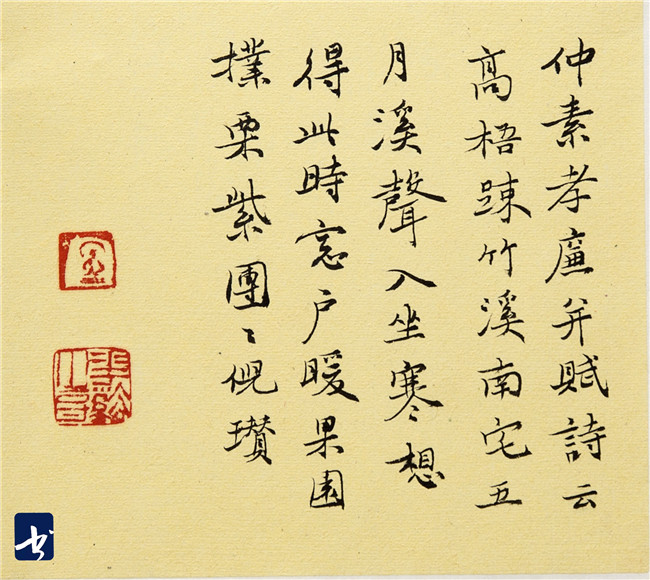 仲素孝廉并賦詩云
高梧踈竹溪南宅五
月溪聲入坐寒想
得此時窓户暖果園
撲栗紫團〻倪瓚